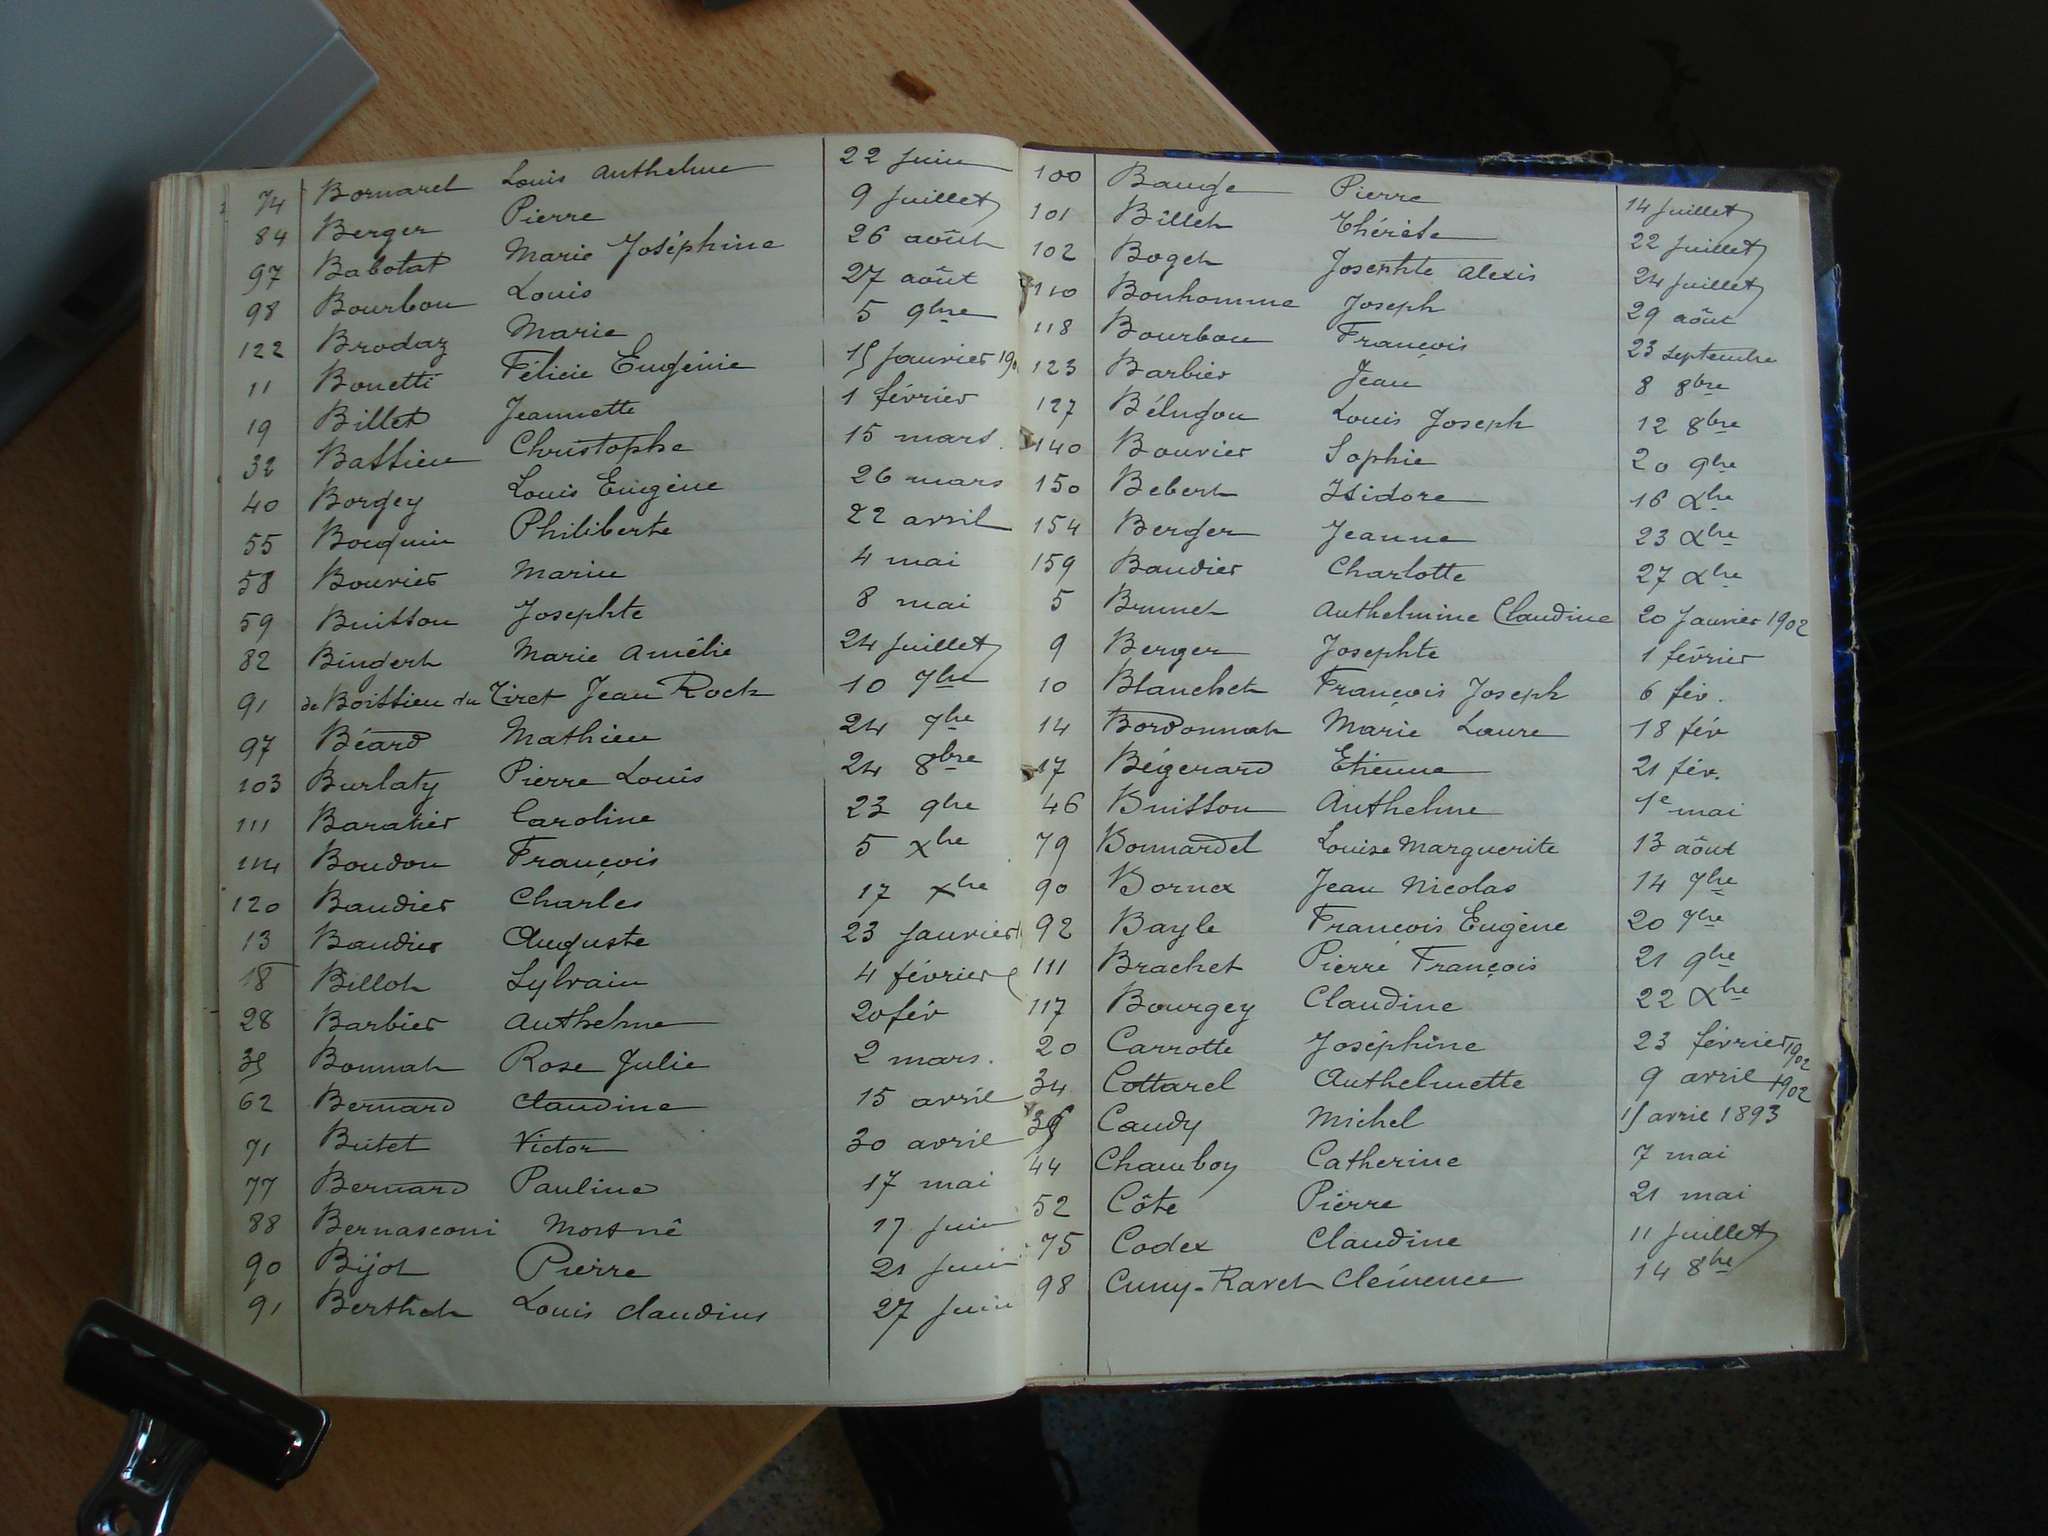 74 Bornarel Louis Anthelme 22 juin
84 Berger Pierre 9 juillet
97 Babolat Marie Joséphine 26 août
98 Bourbon Louis 27 août
122 Brodaz Marie 5 9bre
11 Bonetti Félicie Eugénie 15 janvier
19 Billet Jeannette 1 février
32 Bassieu Christophe 15 mars.
40 Borgey Louis Eugène 26 mars
55 Bouquin Philiberte 22 avril
58 Bouvier Marin 4 mai
59 Buisson Josephte 8 mai
82 Bingert Marie Amélie 24 juillet
91 de Boissieu du Tiret Jean Roch 10 7bre
97 Béard Mathieu 24 7bre
103 Burlaty Pierre Louis 24 8bre
111 Baratier Caroline 23 9bre
114 Boudon François 5 Xbre
120 Baudier Charles 17 Xbre
13 Baudier Auguste 23 janvier
18 Billot Sylvain 4 février
28 Barbier Anthelme 20 fév
35 Bonnat Rose Julie 2 mars.
62 Bernard Claudine 15 avril
71 Butet Victor 30 avril
77 Bernard Pauline 17 mai
88 Bernasconi Mort né 17 juin
90 Bijot Pierre 21 juin
91 Berthet Louis Claudius 27 juin
100 Bauge Pierre 14 juillet
101 Billet Thérèse 22 juillet
102 Boget Josephte Alexis 24 juillet
110 Bonhomme Joseph 29 août
118 Bourbon François 23 septembre
123 Barbier Jean 8 8bre
127 Bélugou Louis Joseph 12 8bre
140 Bouvier Sophie 20 9bre
150 Bebert Isidore 16 Xbre
154 Berger Jeanne 23 Xbre
159 Baudier Charlotte 27 Xbre
5 Brunet Anthelmine Claudine 20 janvier 1902
9 Berger Josephte 1 février
10 Blanchet François Joseph 6 fév.
14 Bordonnat Marie Laure 18 fév
17 Bégerard Etienne 21 fév.
46 Buisson Anthelme 1e mai
79 Bonnardel Louise Marguerite 13 août
90 Bornex Jean Nicolas 14 7bre
92 Bayle François Eugène 20 7bre
111 Brachet Pierre François 21 9bre
117 Bourgey Claudine 22 Xbre
20 Carrotte Joséphine 23 février 1902
34 Cottarel Anthelmette 9 avril 1902
Caudy Michel 15 avril 1893
44 Chamboy Catherine 7 mai
52 Côte Pierre 21 mai
75 Codex Claudine 11 juillet
98 Cuny-Ravet Clémence 14 8bre